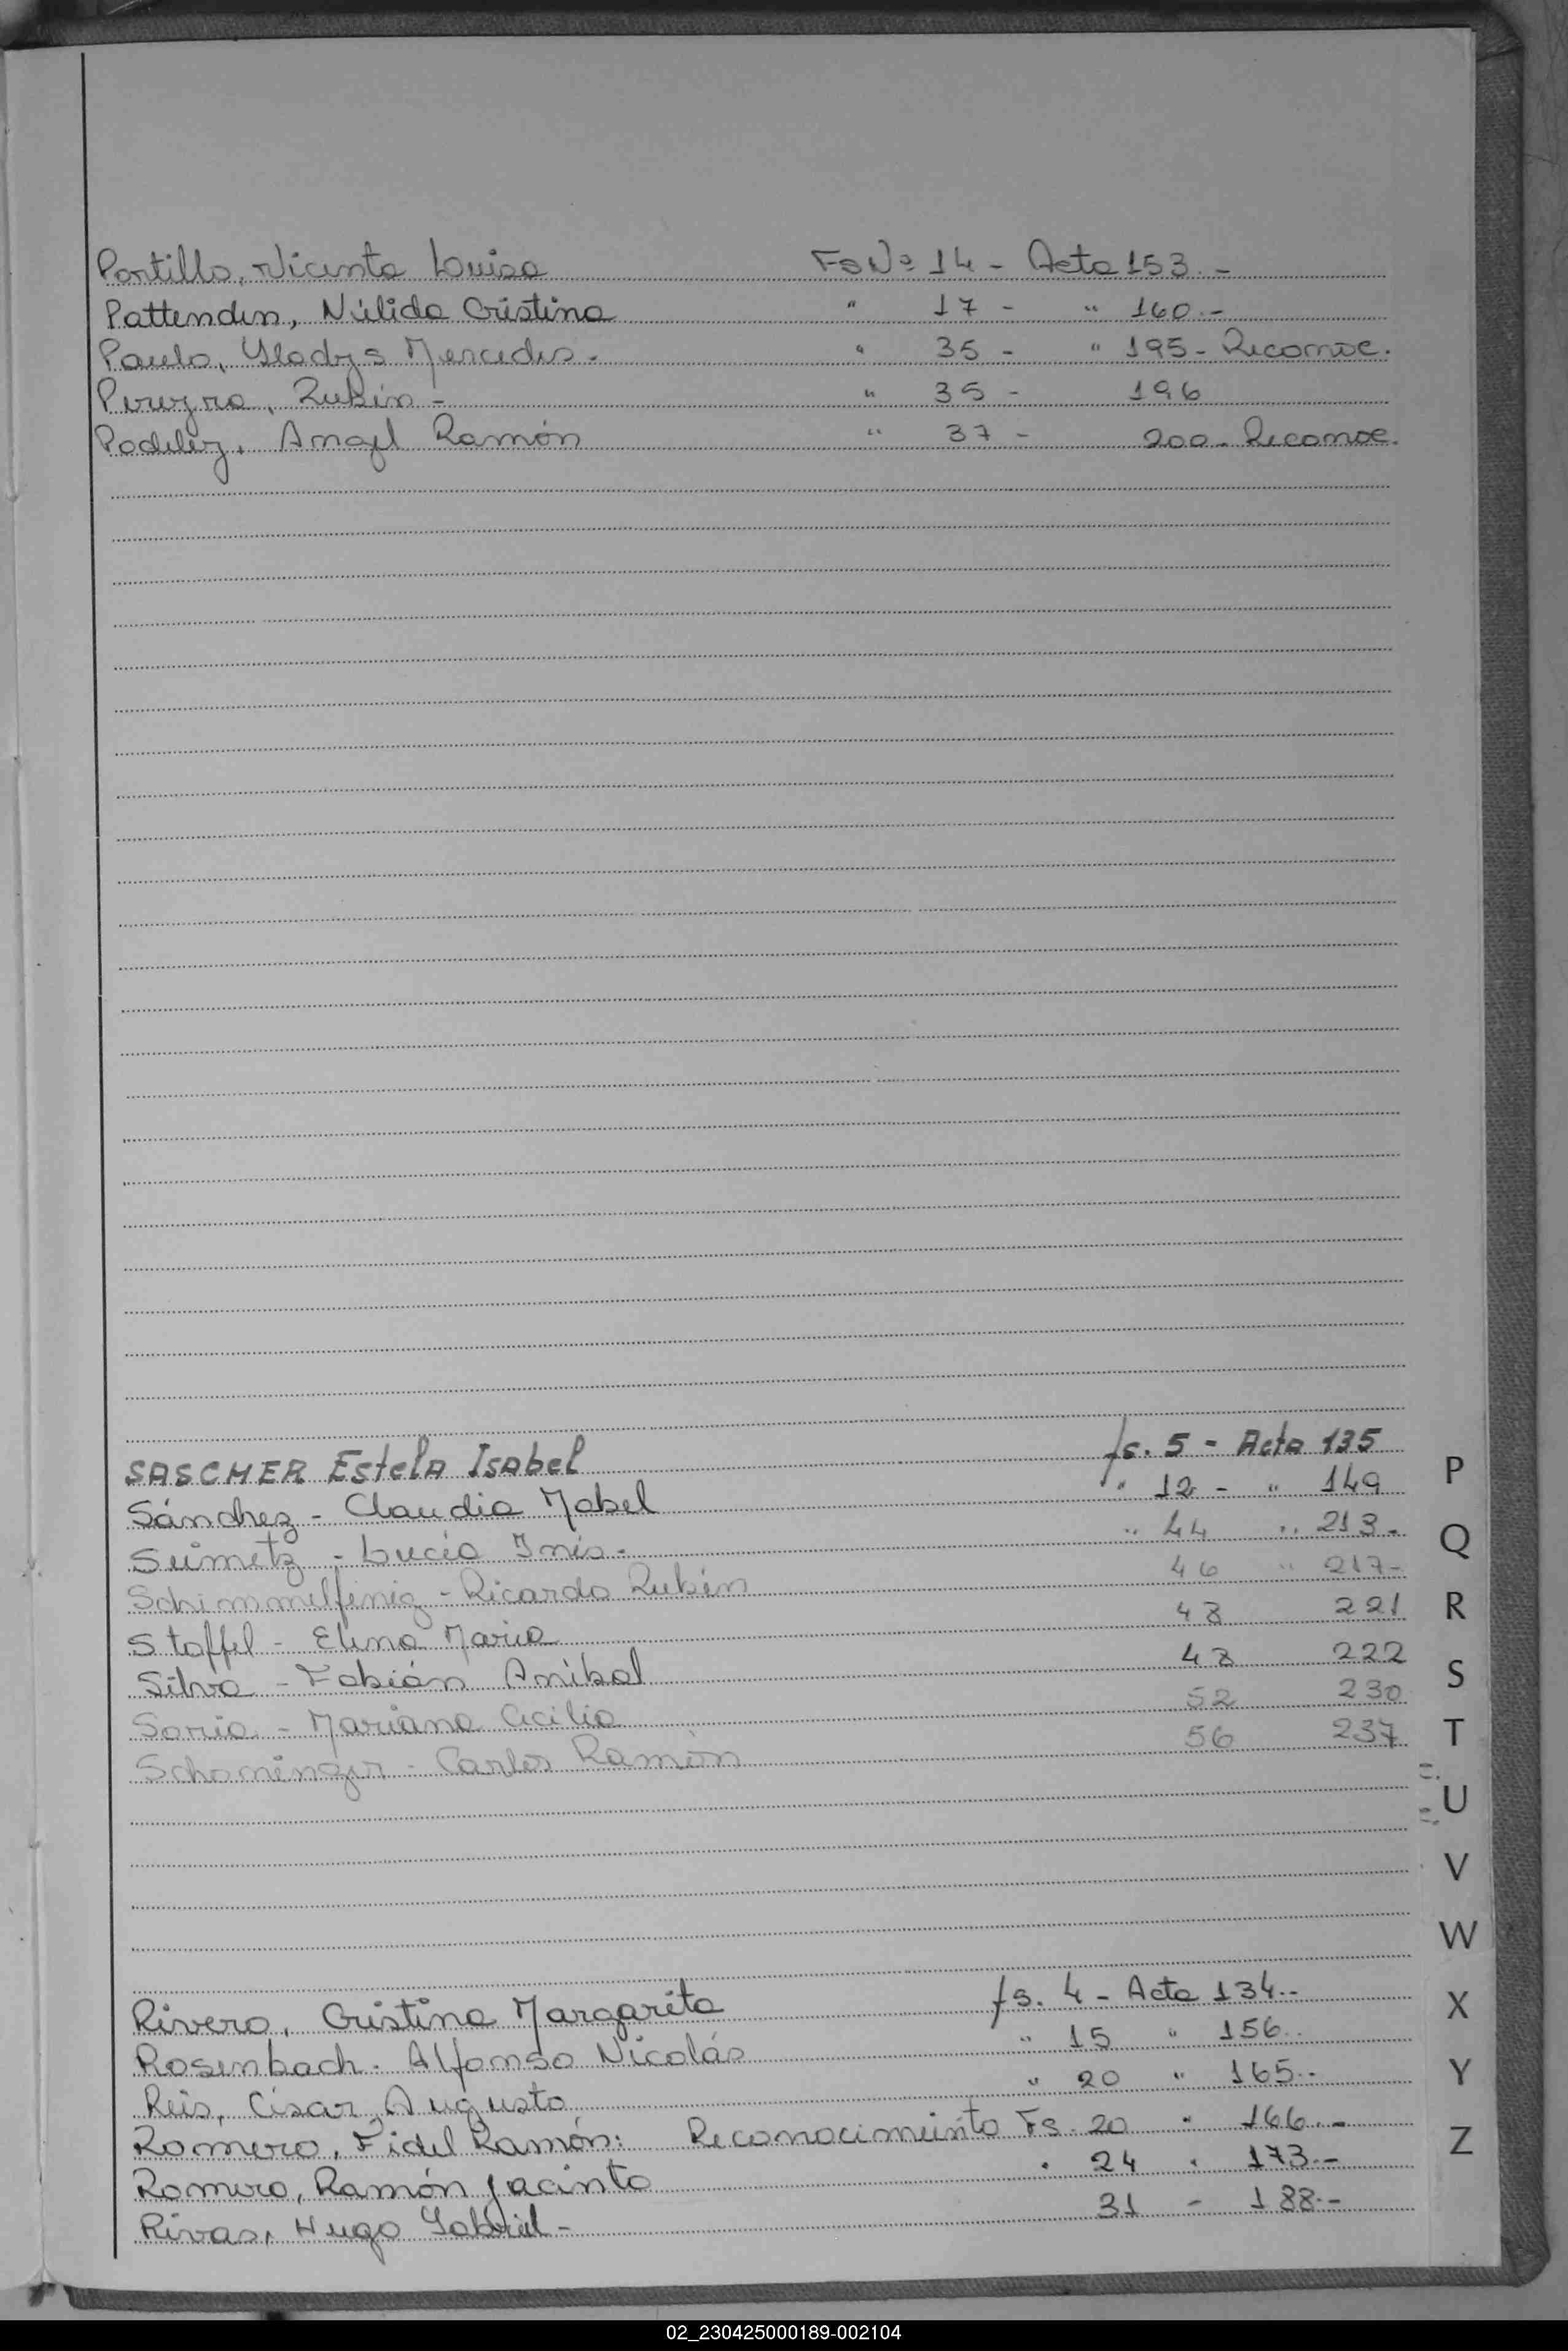 Portillo, Vicenta Luisa Fs Nº 14 - Acta 153.-
Pattenden, Nélida Cristina " 17 - " 160.-
Paulo, Gladys Mercedes.- " 35 - " 195- Reconoc.
Pereyra, Rubén - " 35 - 196
Podeley, Angel Ramón " 37 - 200- Reconoc.
SASCHER Estela Isabel fs. 5 - Acta 135
Sánchez - Claudia Mabel " 12 - " 149
Seimetz - Lucía Inés.- " 44 " 213.-
Schimmelfenig - Ricardo Rubén 46 " 217-
Stoffel - Elena María 48 221
Silva - Fabián Anibal 48 222
Soria - Mariana Cecilia 52 230
Schoneinger - Carlos Ramón 56 237
Rivero, Cristina Margarita fs. 4 - Acta 134.-
Rosenbach. Alfonso Nicolás " 15 " 156.-
Reis, César Augusto " 20 " 165.-
Romero, Fidel Ramón: Reconocimiento Fs. 20 " 166.-
Romero, Ramón Jacinto " 24 " 173.-
Rivas, Hugo Gabriel - 31 - 188.-
P
Q
R
S
T
U
V
W
X
Y
Z
02_230425000189-002104